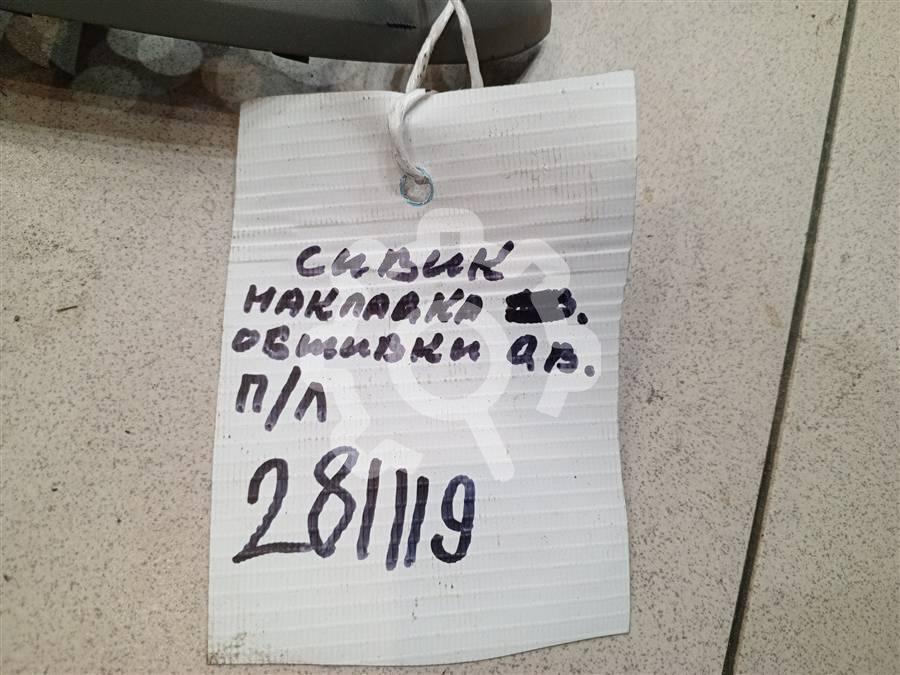 СИВИК
НАКЛАДКА
ОБШИВКИ ДВ.
П/Л
281119